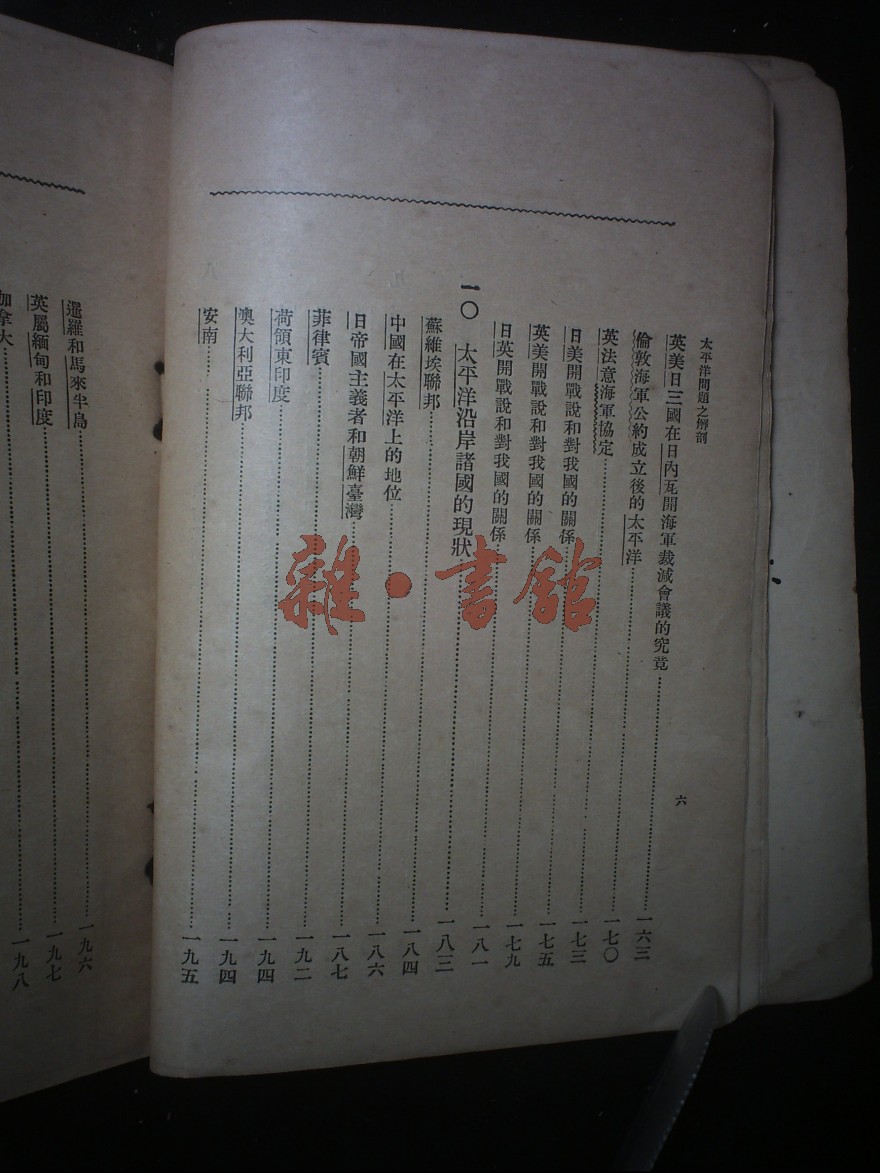 太平洋問題之解剖
六
英美日三國在日內瓦開海軍裁減會議的究竟……一六三
倫敦海軍公約成立後的太平洋……一七〇
英法意海軍協定……一七三
日美開戰說和對我國的關係……一七五
英美開戰說和對我國的關係……一七九
日英開戰說和對我國的關係……一八一
一〇 太平洋沿岸諸國的現狀……一八三
蘇維埃聯邦……一八四
中國在太平洋上的地位……一八六
日帝國主義者和朝鮮臺灣……一八七
菲律賓……一九二
荷領東印度……一九四
澳大利亞聯邦……一九四
安南……一九五
暹羅和馬來半島……一九六
英屬緬甸和印度……一九七
加拿大……一九八
雜·書館